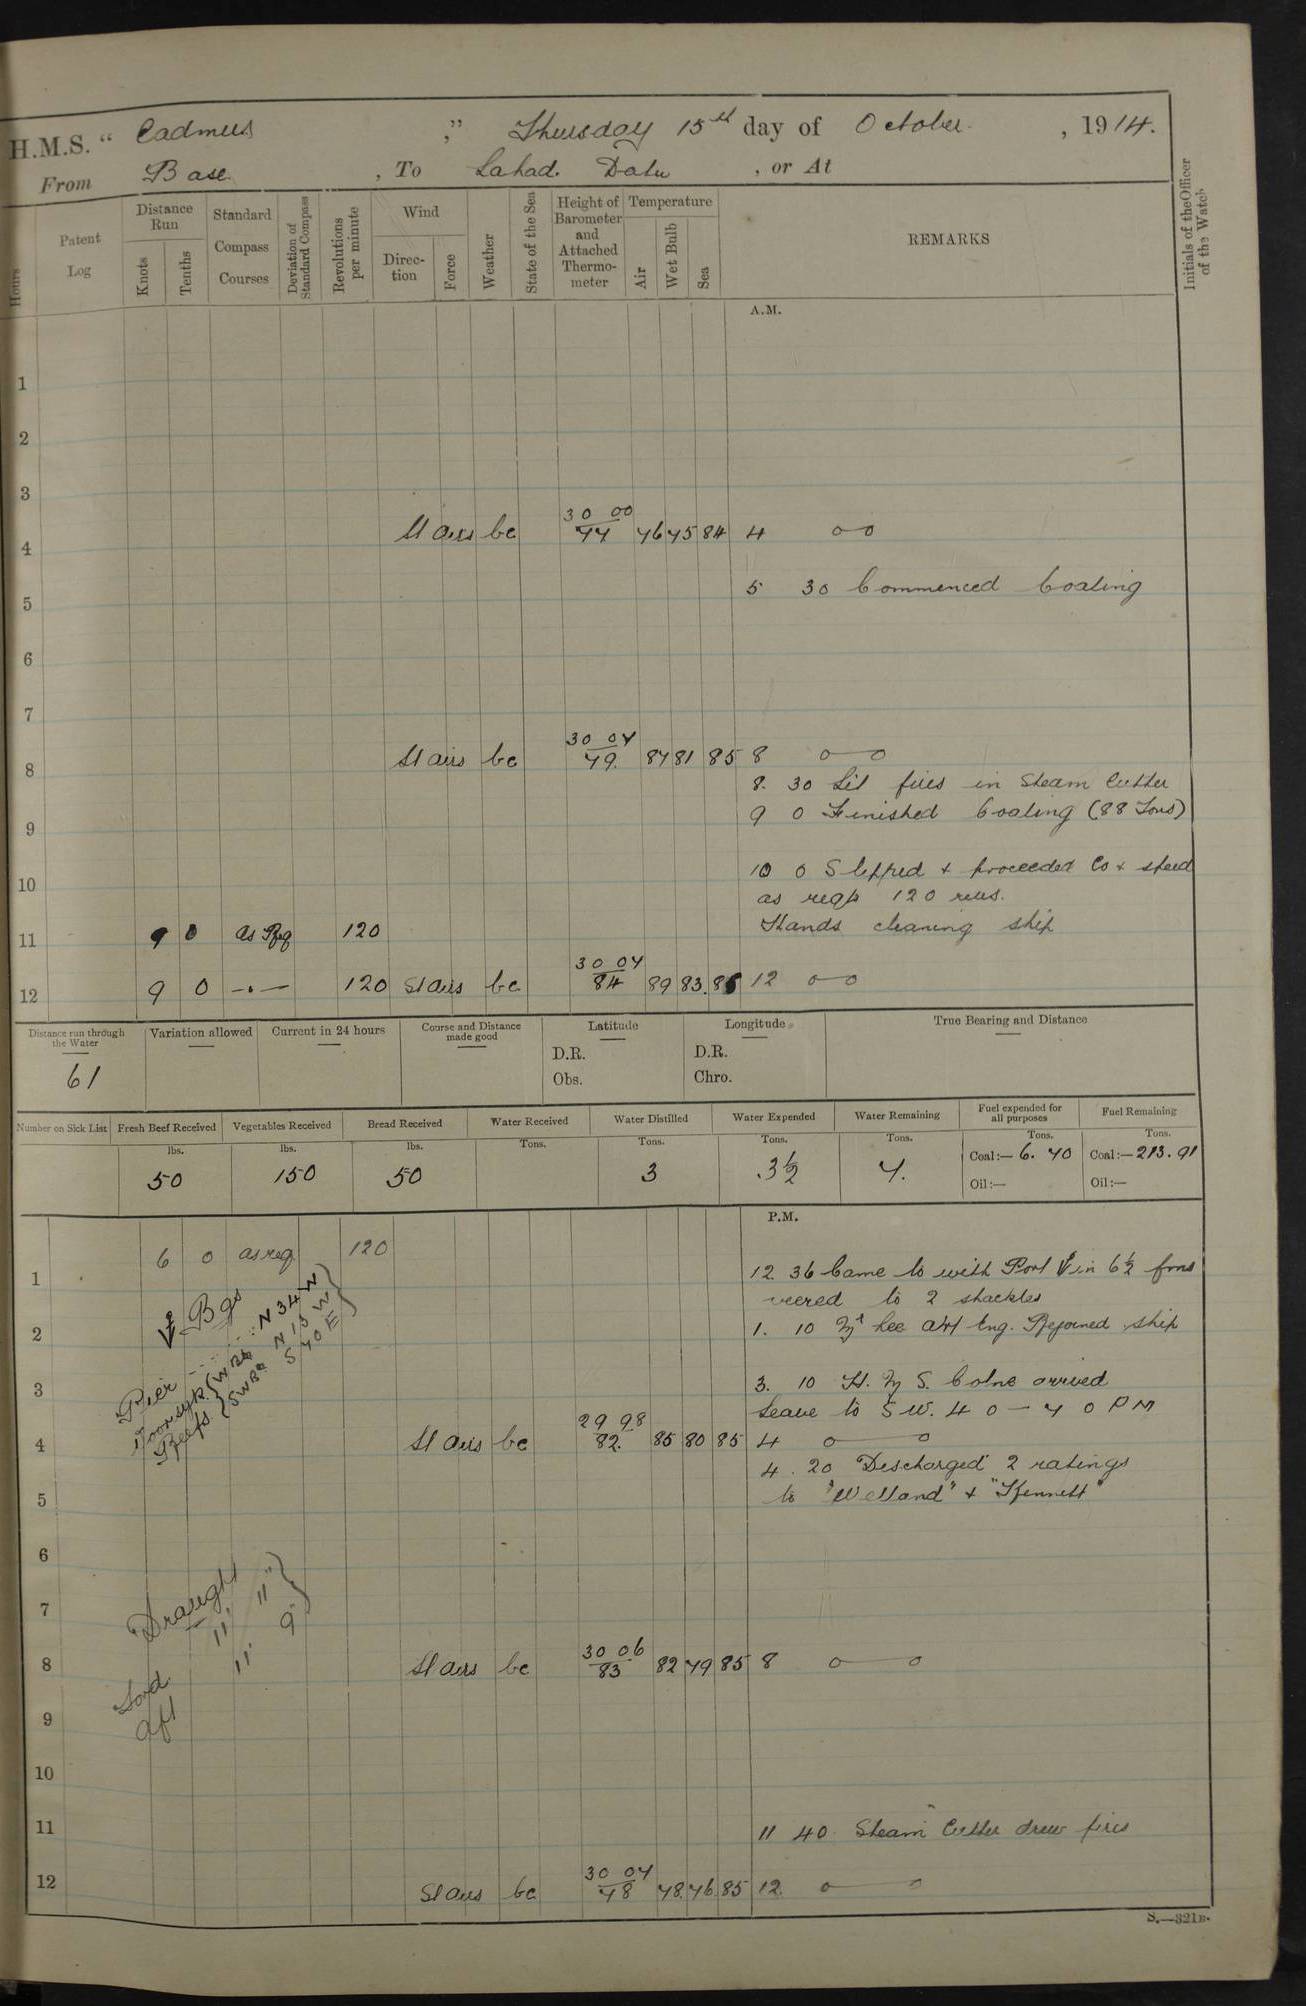 H.M.S. " Cadmus ," Thursday 15th day of October , 1914.
From Base , To Lahad Datu , or At
Hours
Patent Log
Distance Run
Knots
Tenths
Standard Compass Courses
Deviation of Standard Compass
Revolutions per minute
Wind
Direction
Force
Weather
State of the Sea
Height of Barometer and Attached Thermometer
Temperature
Air
Wet Bulb
Sea
REMARKS
Initials of the Officer of the Watch
A.M.
1
2
3
4 Sl airs bc 30 00 77 76 75 84 4 o—o
5 5 30 Commenced Coaling
6
7
8 Sl airs bc 30 07 79. 87 81 85 8 o—o
8. 30 Lit fires in Steam Cutter
9 9 0 Finished Coaling (88 Tons)
10 10 0 Slipped + proceeded Co + speed
as reqd 120 revs.
11 9 0 as Req 120 Hands cleaning ship
12 9 0 —.— 120 Sl airs bc 30 07 84 89 83. 86 12 o—o
Distance run through the Water
Variation allowed
Current in 24 hours
Course and Distance made good
Latitude
Longitude
True Bearing and Distance
D.R. D.R.
61 Obs. Chro.
Number on Sick List
Fresh Beef Received
Vegetables Received
Bread Received
Water Received
Water Distilled
Water Expended
Water Remaining
Fuel expended for all purposes
Fuel Remaining
lbs. lbs. lbs. Tons. Tons. Tons. Tons. Tons. Tons.
50 150 50 3 3½ 7. Coal:— 6. 70 Coal:— 213. 91
Oil:— Oil:—
P.M.
1 6 0 as req 120
12 36 Came to with Port in 6½ fms
veered to 2 shackles
2 1. 10 Mr Lee Art Eng. Rejoined ship
Bgs
Pier N 34 W
N 15 W
Reefs S 70 E
3 3. 10 H. M S. Colne arrived
Leave to S W. 4 0 — 7 0 PM
4 Sl airs bc 29 98 82. 85 80 85 4 o—o
4. 20 Discharged 2 ratings
5 to "Welland" + "Kennett"
6
Draught
7
8 Sl airs bc 30 06 83 82 79 85 8 o—o
Ford 11' 11"
Aft 11' 9"
9
10
11 11 40 Steam Cutter drew fires
12 Sl airs bc 30 04 78 78. 76. 85 12. o—o
S.—321B.